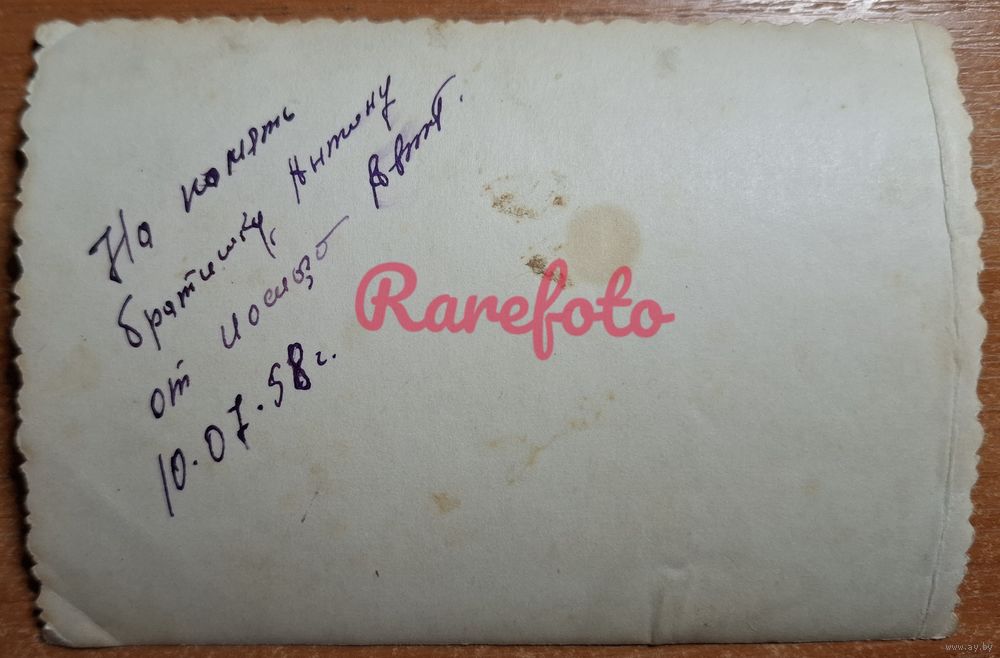 На память
братишку, Антону
от
10.07.58 г.
Rarefoto
www.ay.by